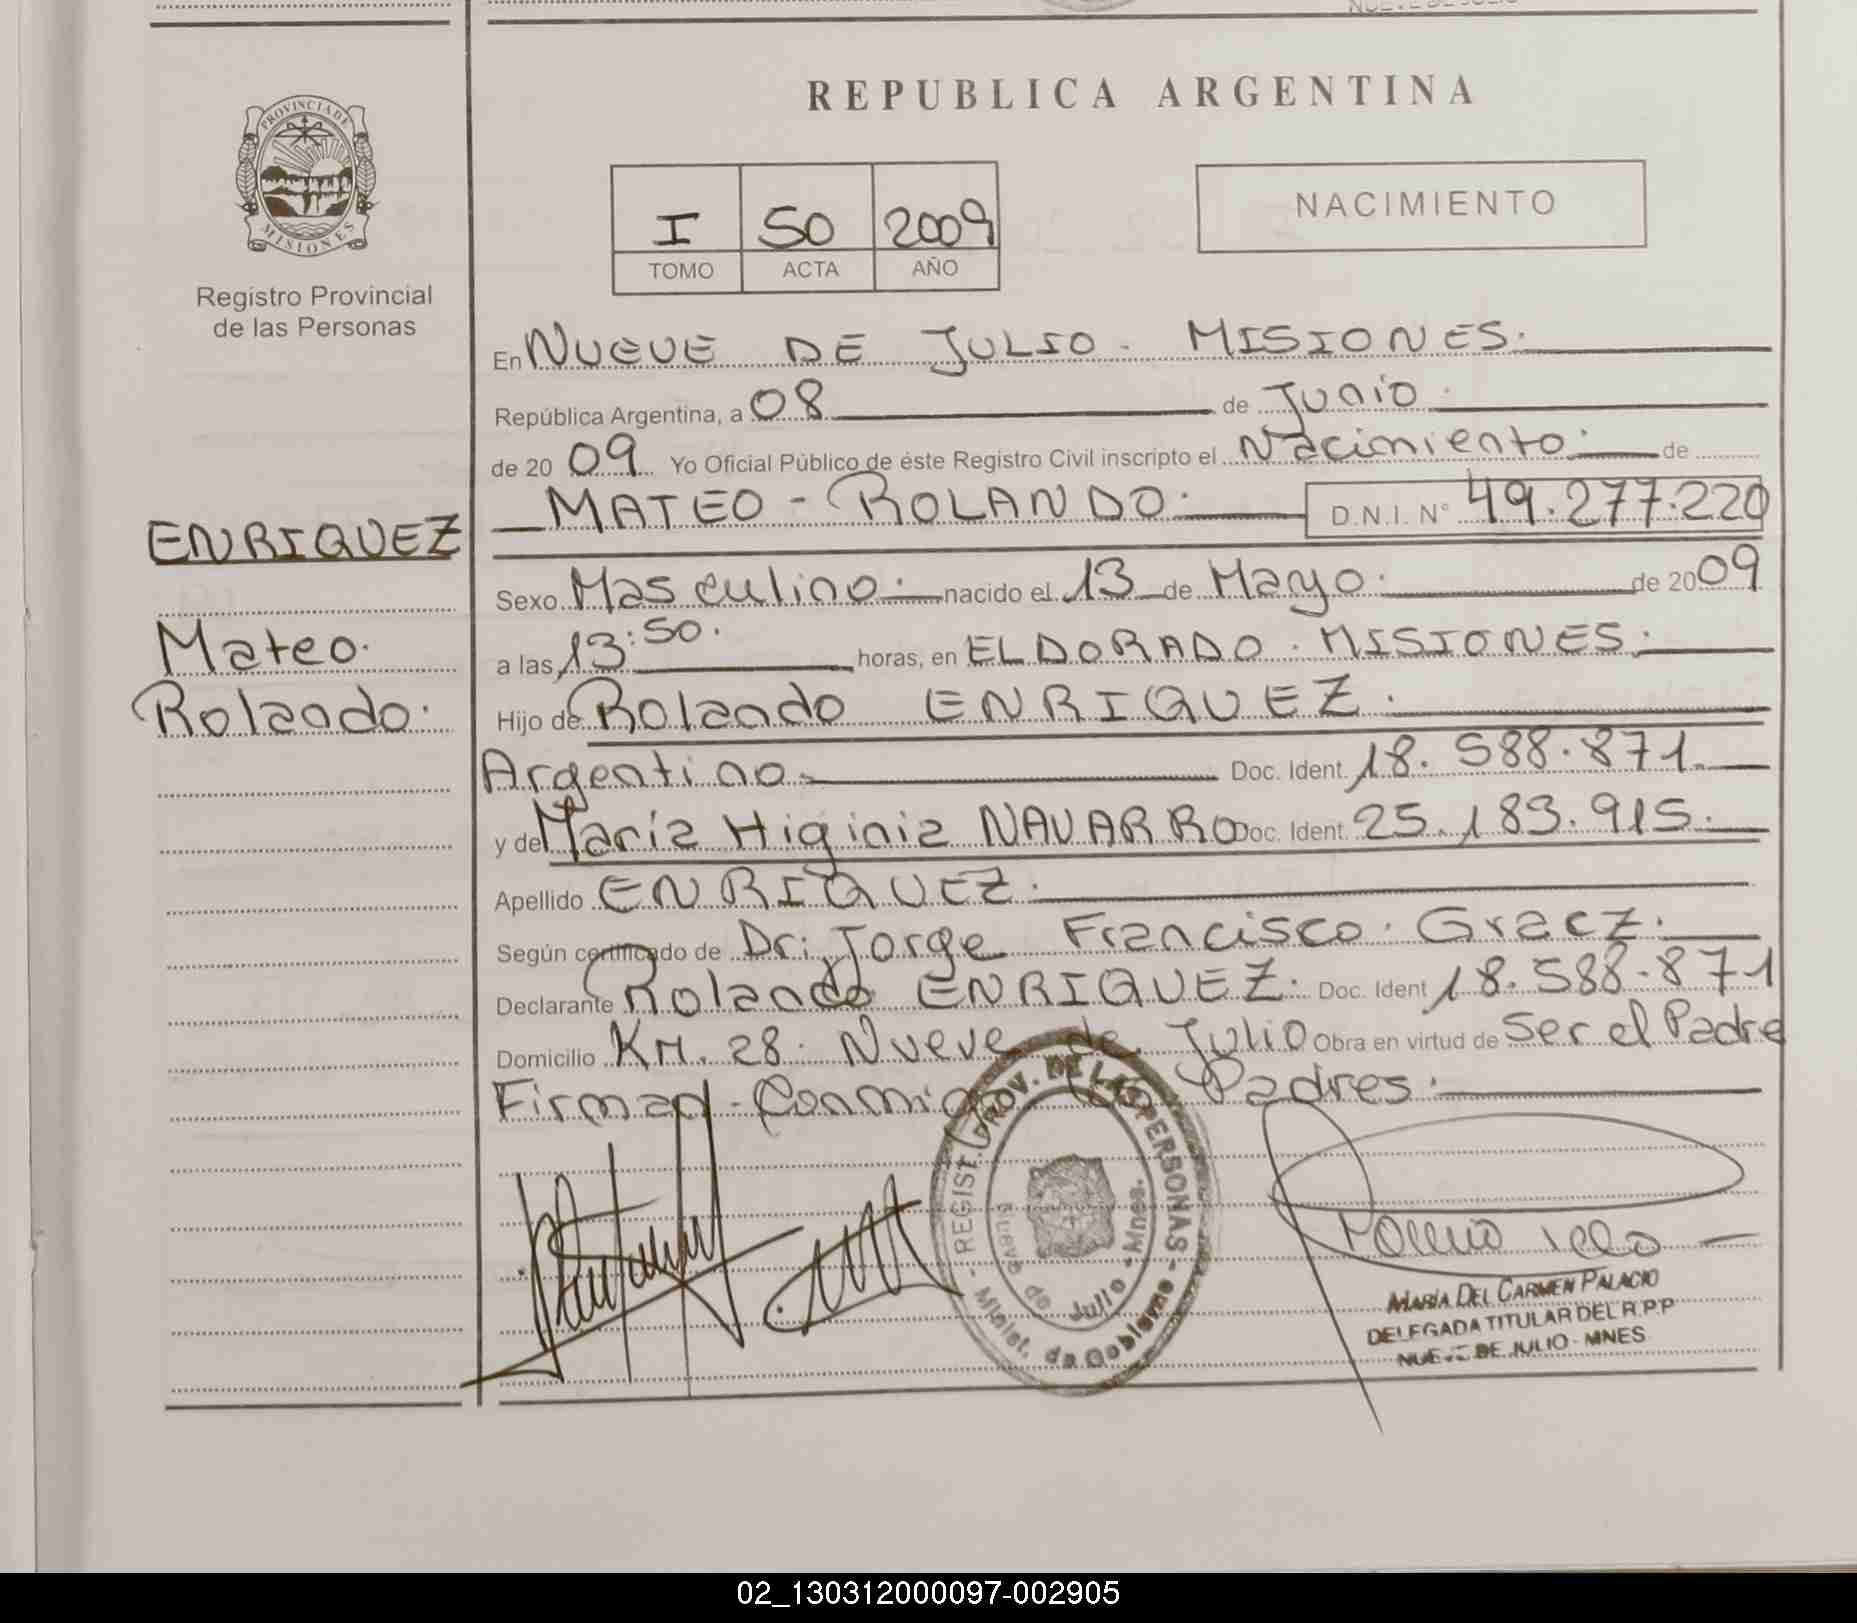 REPUBLICA ARGENTINA
PROVINCIA DE
MISIONES
Registro Provincial
de las Personas
I 50 2009
TOMO ACTA AÑO
NACIMIENTO
En NUEVE DE JULIO. MISIONES.
República Argentina, a 08 de Junio.
de 20 09 Yo Oficial Público de éste Registro Civil inscripto el Nacimiento. de
MATEO - ROLANDO. D.N.I. N° 49.277.220
ENRIQUEZ
Mateo.
Rolando.
Sexo Masculino. nacido el 13 de Mayo. de 20 09
a las 13:50. horas, en ELDORADO. MISIONES.
Hijo de Rolando ENRIQUEZ.
Argentino. Doc. Ident. 18.588.871.
y de María Higinia NAVARRO Doc. Ident. 25.183.915.
Apellido ENRIQUEZ.
Según certificado de Dr. Jorge Francisco. Gracz.
Declarante Rolando ENRIQUEZ. Doc. Ident 18.588.871
Domicilio KM. 28. Nueve de Julio Obra en virtud de Ser el Padre
Firman Conmigo los Padres.
REGIST. PROV. DE LAS PERSONAS
Nueve de Julio - Mnes.
Minist. de Gobierno
MARÍA DEL CARMEN PALACIO
DELEGADA TITULAR DEL R.P.P
NUEVE DE JULIO - MNES
02_130312000097-002905